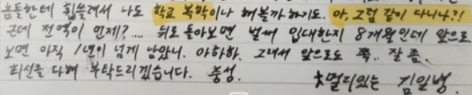 놈들한테 휩쓸려서 나도 학교 복학이나 해볼까 하기도. 아, 그럼 같이 다니나?!
근데 전역이 언제?.... 뒤로 돌아보면 벌써 입대한지 8개월인데 앞으로
보면 아직 1년이 넘게 남았네. 아하하. 그래서 앞으로도 쭉. 잘 좀.
회신을 다해 부탁드리겠습니다. 충성.
멀리있는 김일병.